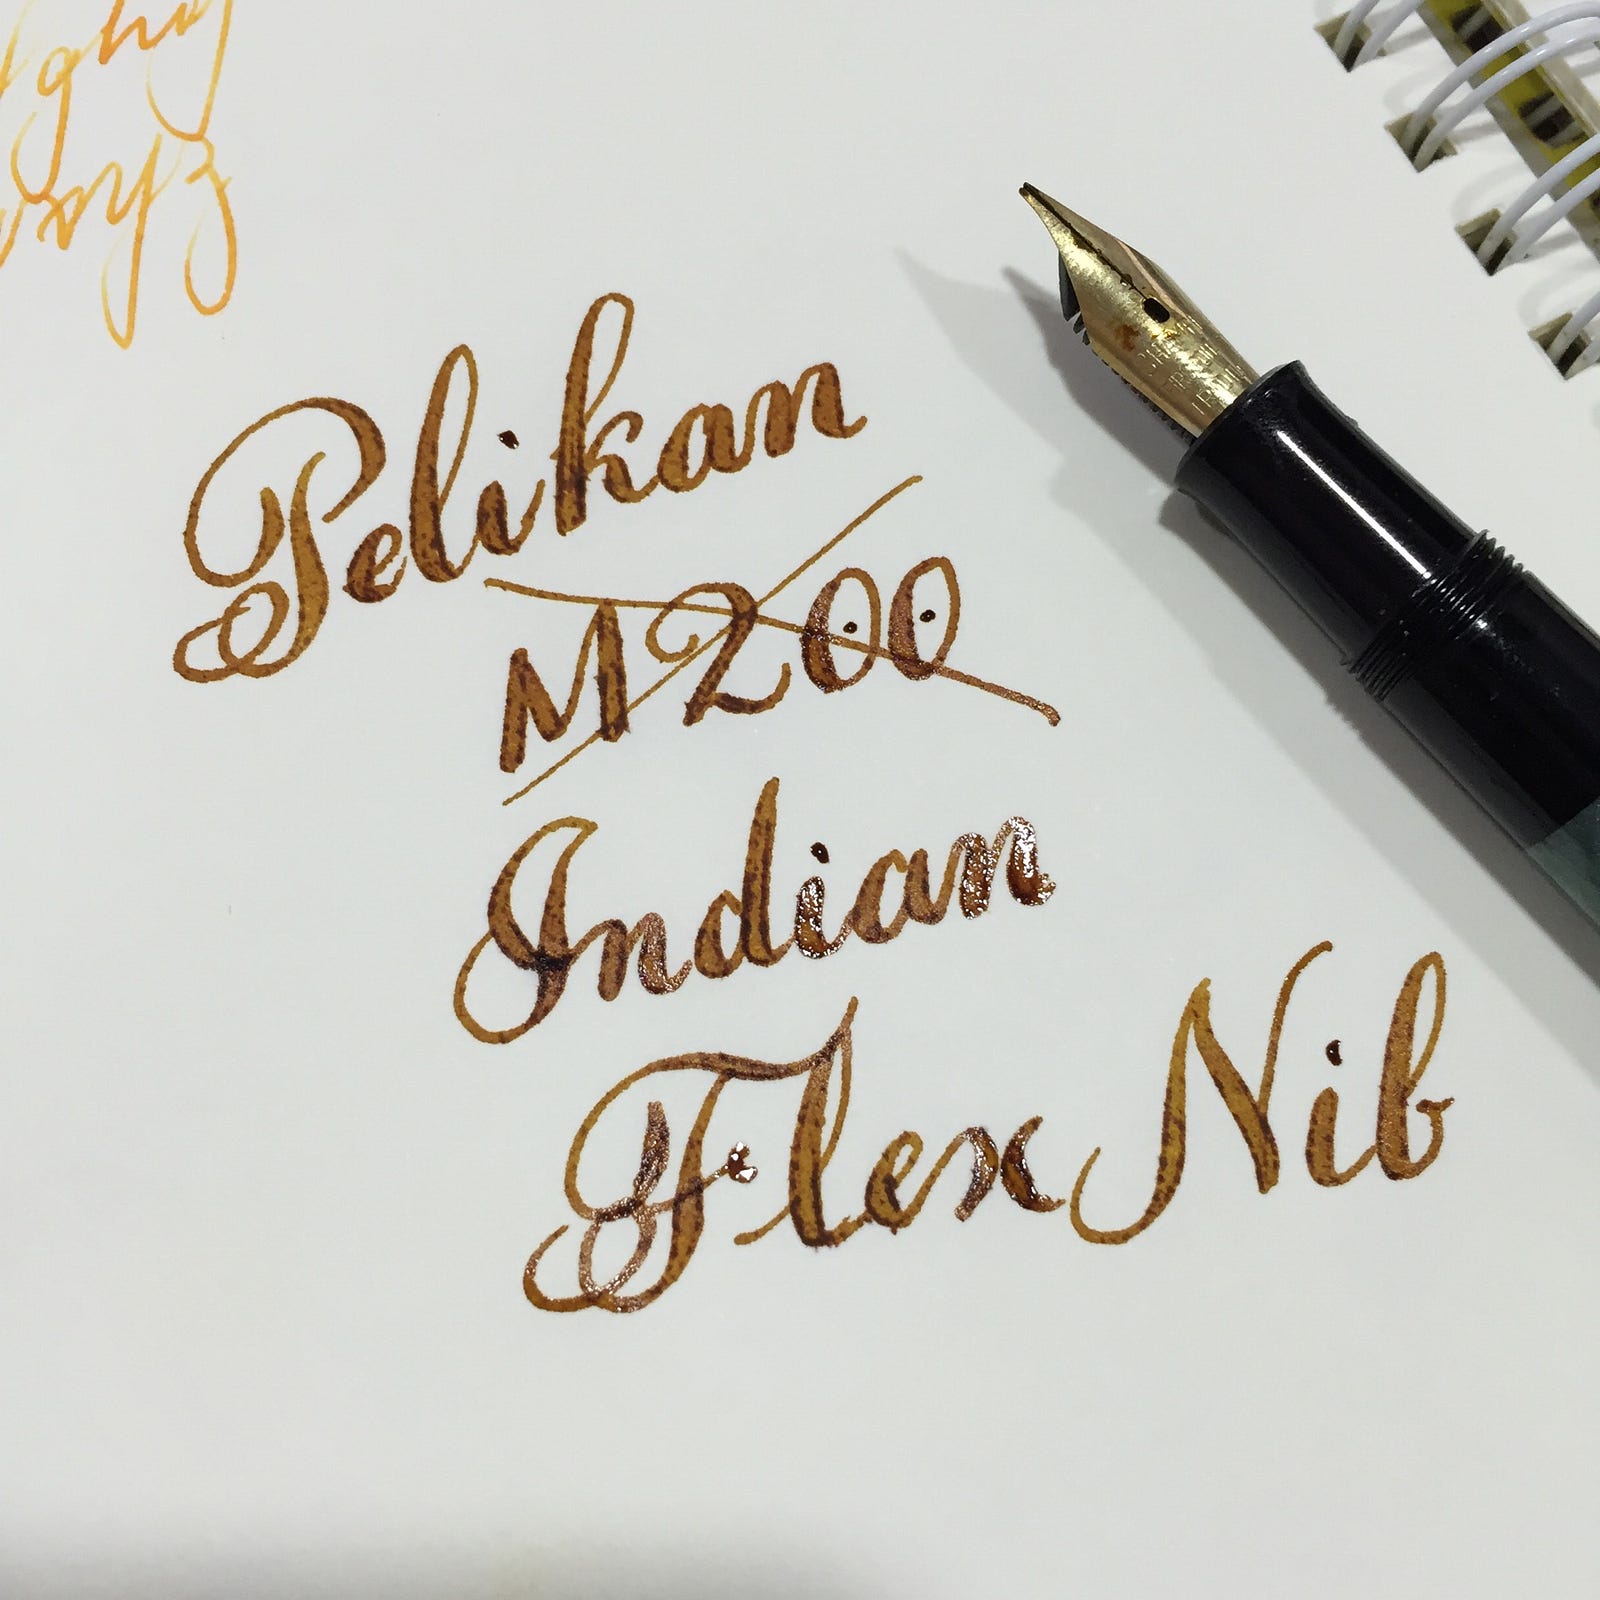 Pelikan
M200
Indian
Flex Nib